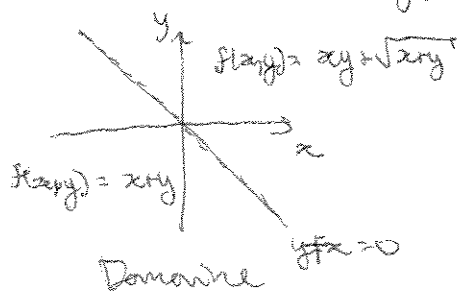 y
f(x,y) = xy + √x+y
x
f(x,y) = x+y
y+x=0
Domaine